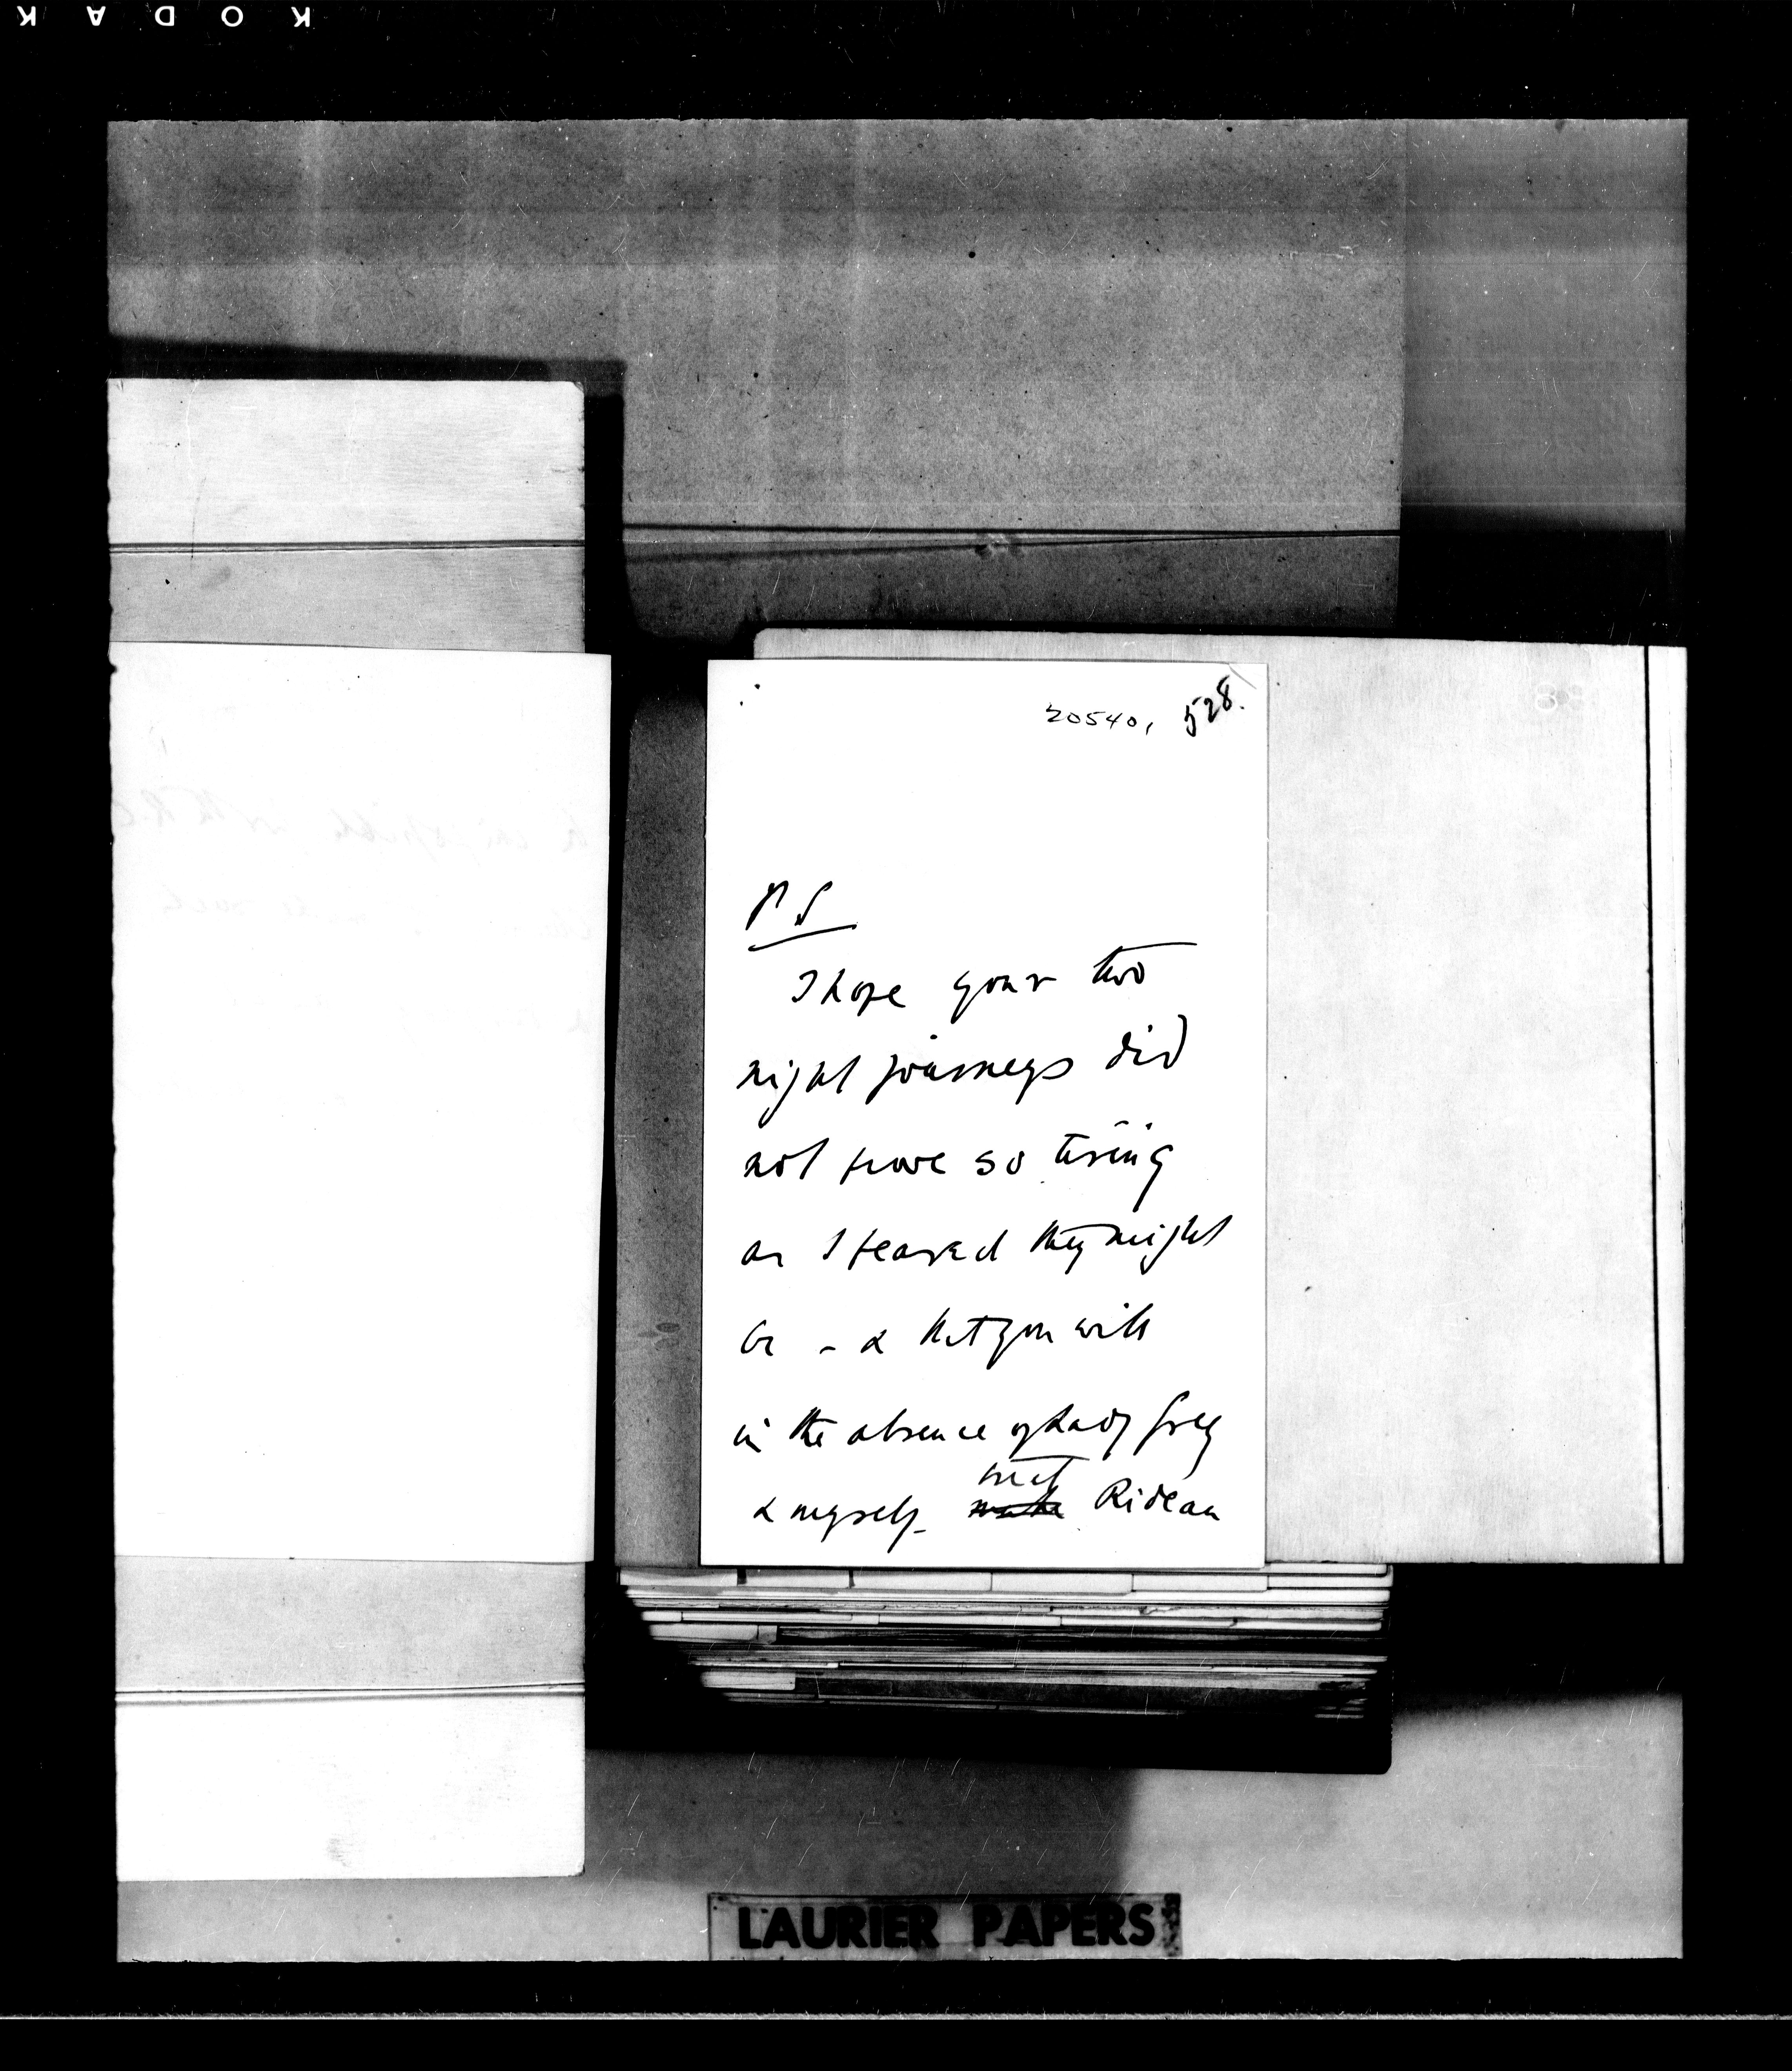 KODAK
20540, 528.
PS
I hope your two
night journeys did
not prove so tiring
as I feared they might
be - & that you will
in the absence of Lady Grey
& myself - Rideau
LAURIER PAPERS